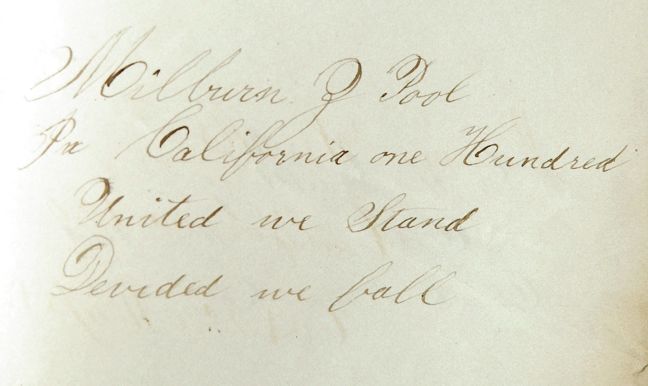 Milburn Z Pool
Pa California one Hundred
United we Stand
Devided we fall